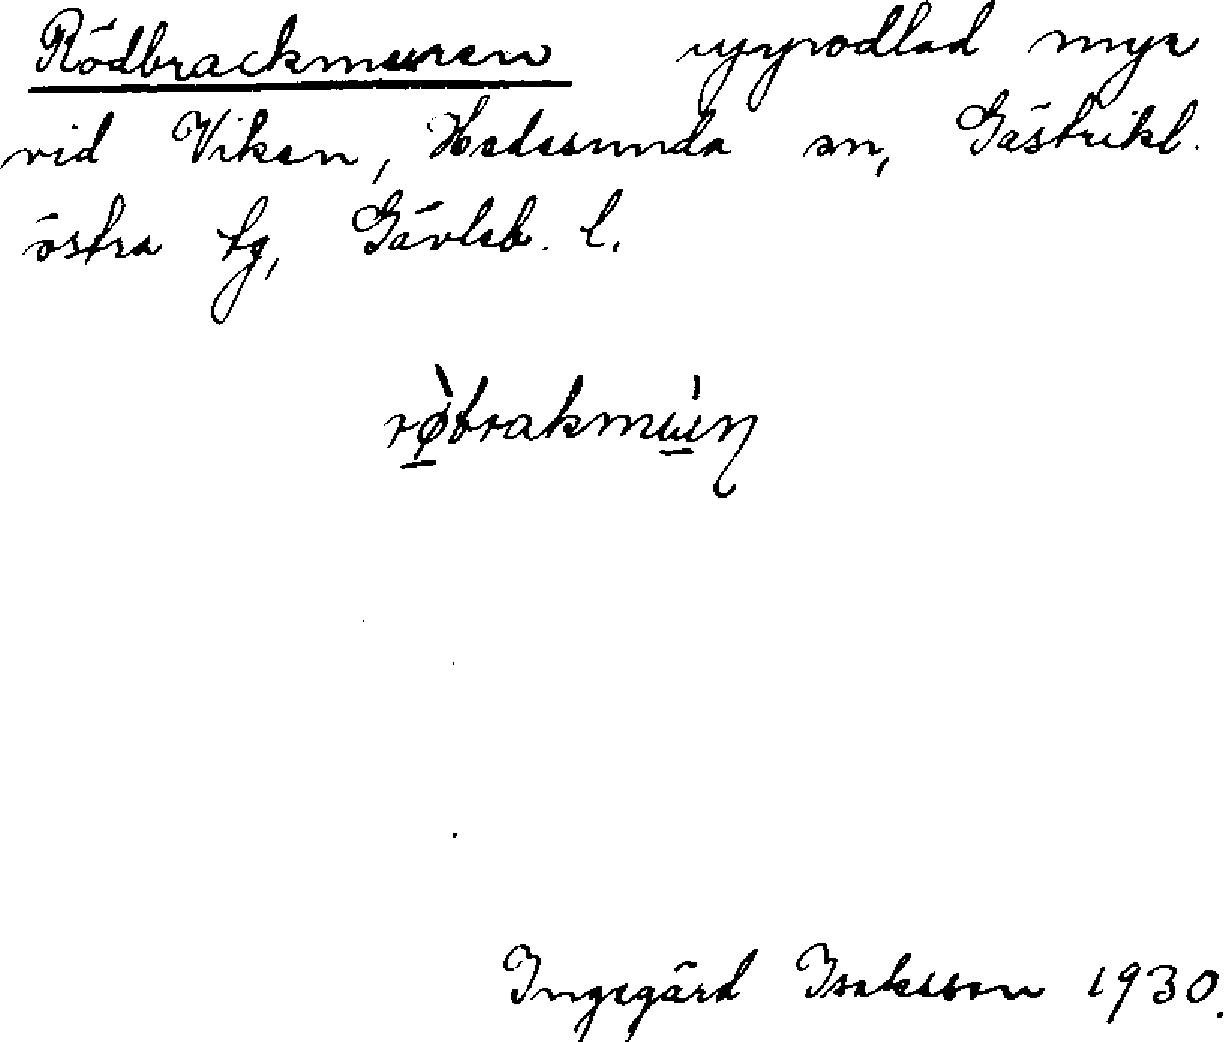 Rödbrackmuren uppodlad myr
vid Viken, Hedesunda sn, Gästrikl.
östra tg, Gävleb. l.
Ingegärd Isaksson 1930.